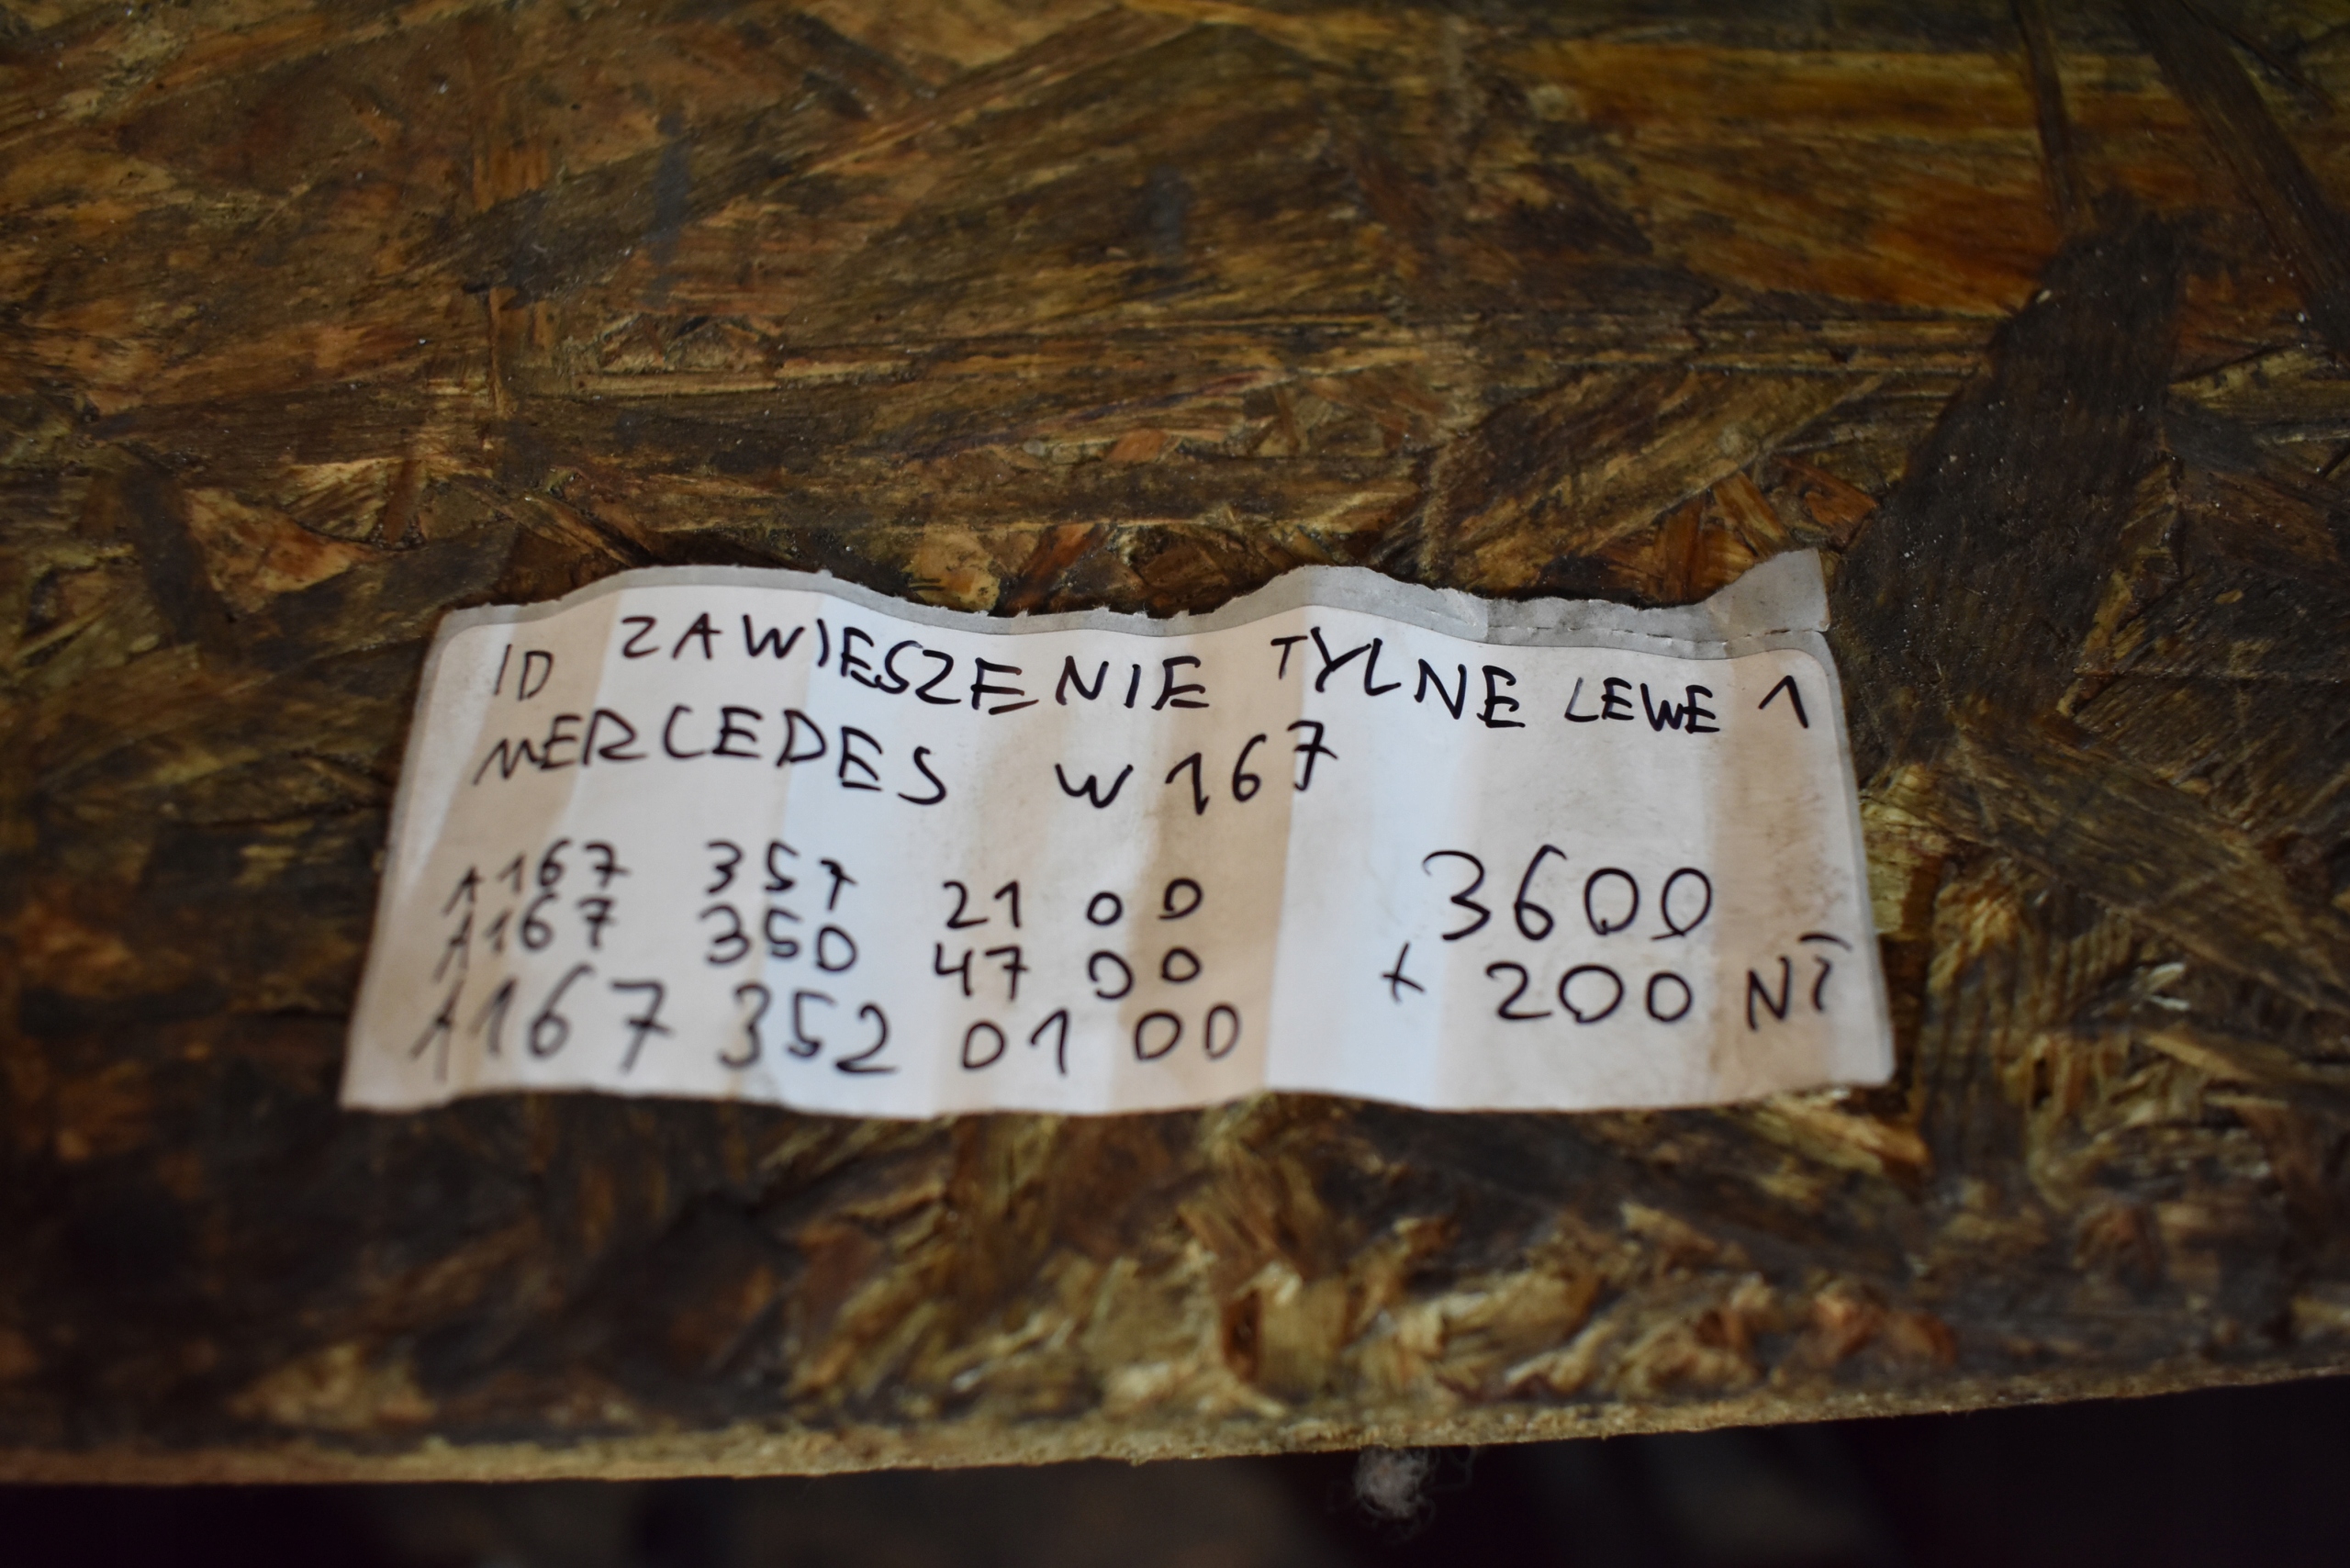 ID ZAWIESZENIE TYLNE LEWE 1
MERCEDES W167
A167 357 21 00
A167 350 47 00
A167 352 01 00
3600
+ 200 NT